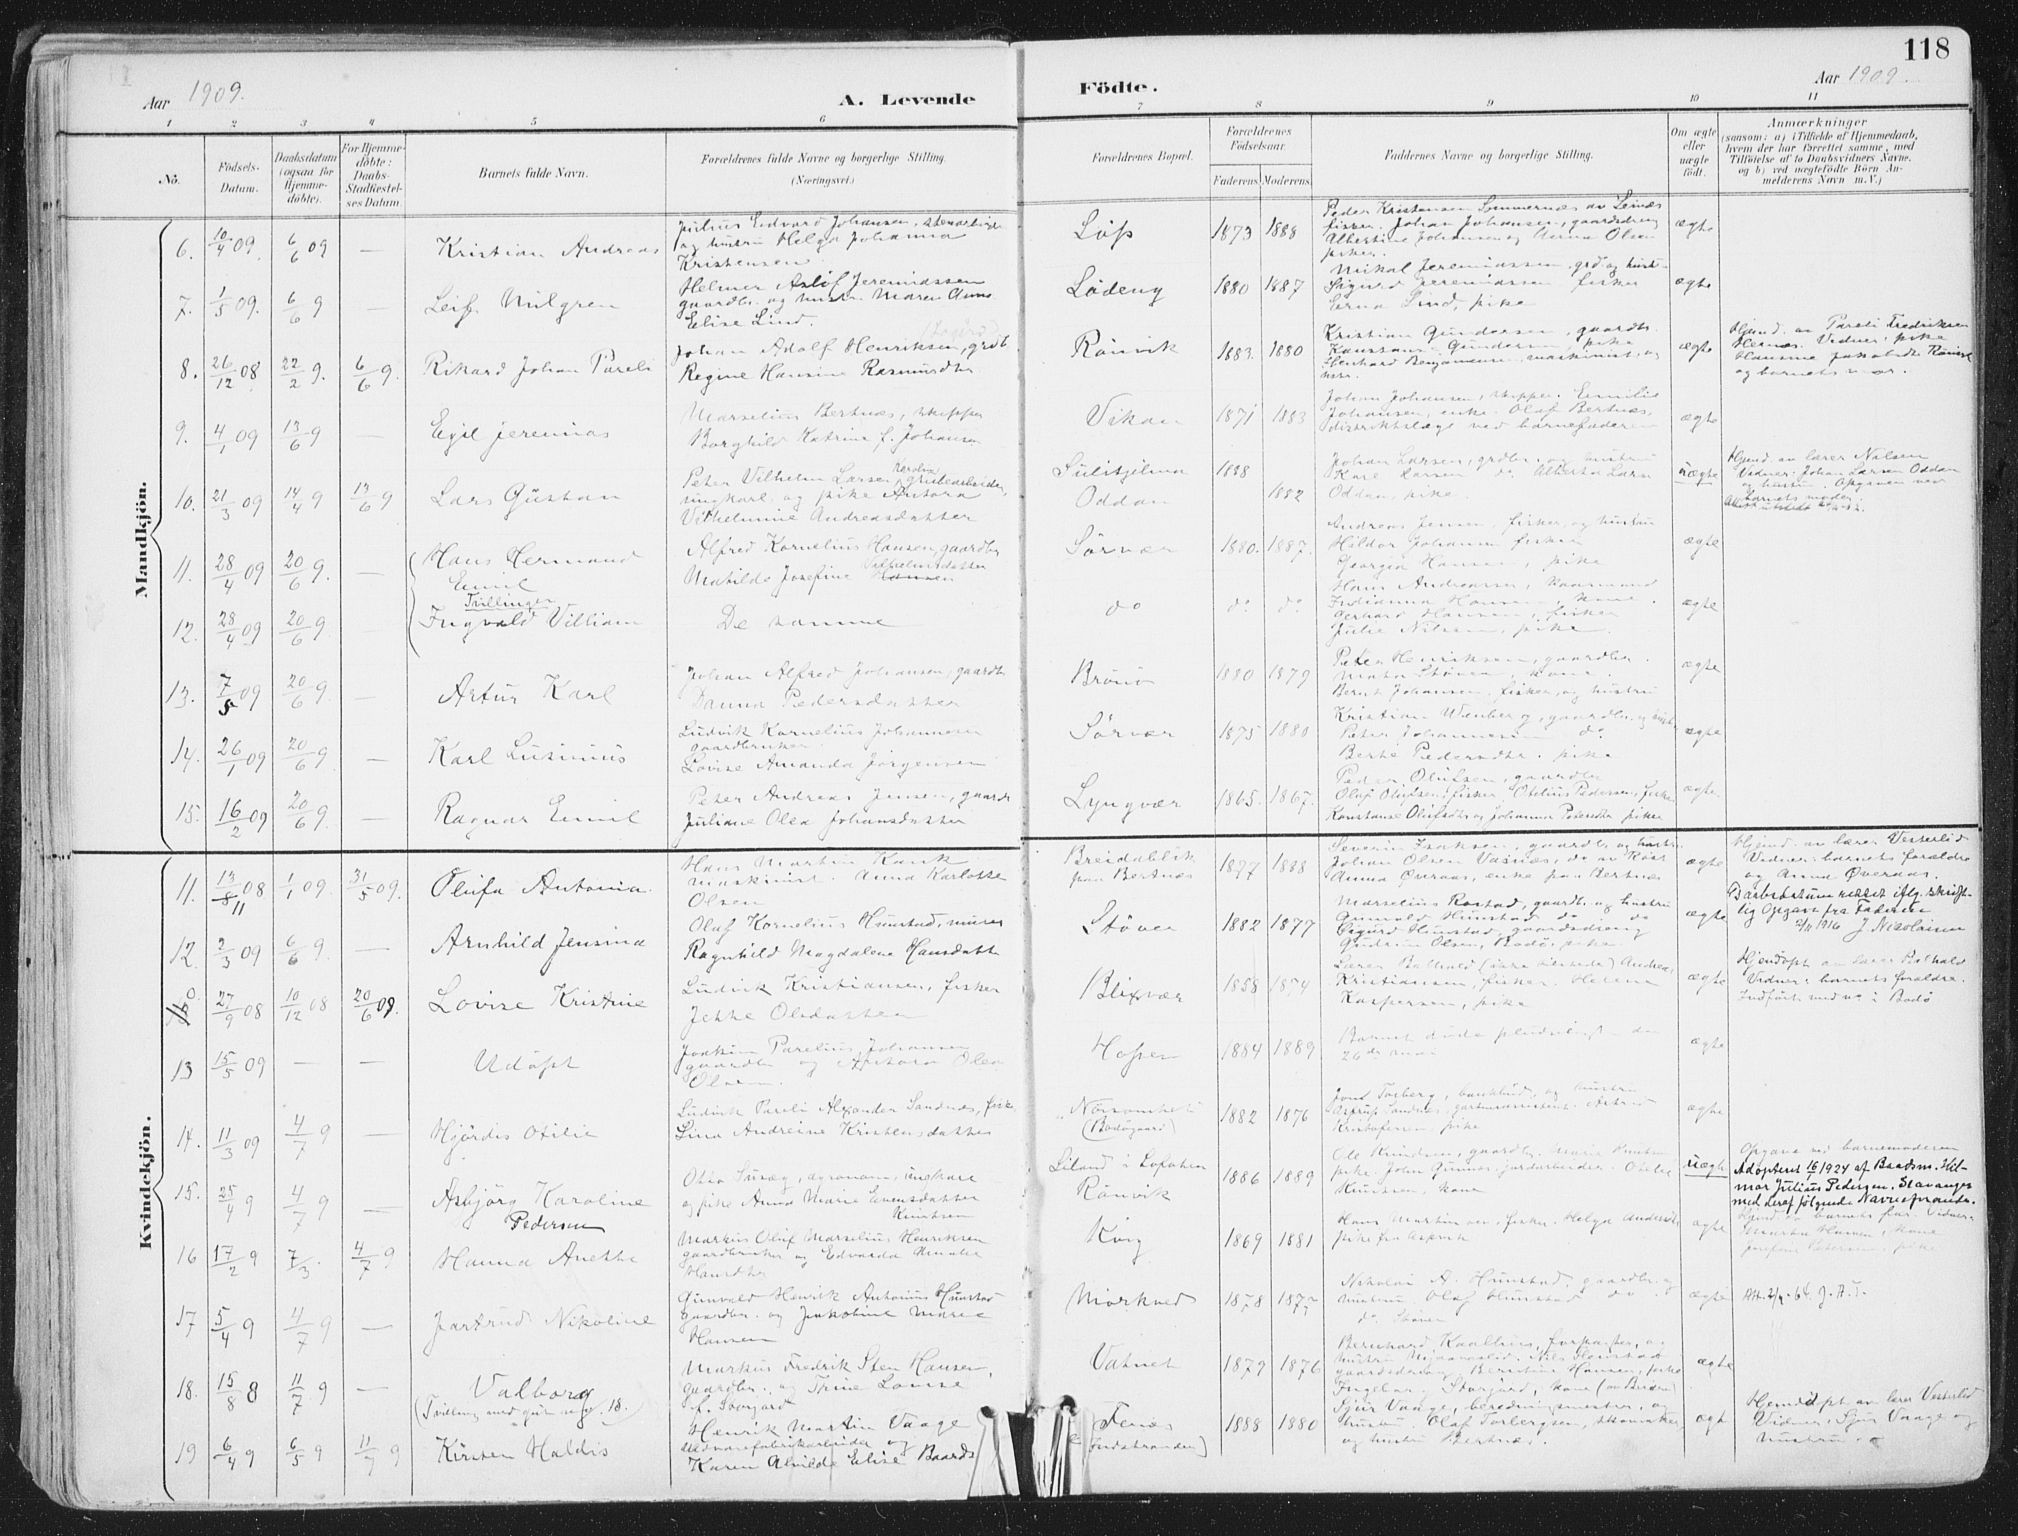 118
Aar 1909.
A. Levende
Födte.
Aar 1909.
1 2 3 4 5 6 7 8 9 10 11
No.
Födsels-Datum.
Daabsdatum (ogsaa for Hjemmedöbte).
For Hjemmedöbte: Daabs-Stadfæstelses Datum.
Barnets fulde Navn.
Forældrenes fulde Navne og borgerlige Stilling.
(Næringsvei.)
Forældrenes Bopæl.
Forældrenes Födselsaar.
Faderens. Moderens.
Faddernes Navne og borgerlige Stilling.
Om ægte eller uægte födt.
Anmærkninger
(saasom: a) i Tilfælde af Hjemmedaab, hvem der har forrettet samme, med Tilföielse af to Daabsvidners Navne. og b) ved uægtefödte Börn Anmelderens Navn m. V.)
Mandkjön.
6. 10/4 09. 6/6 09 — Kristian Andreas
Julius Edvard Johansen, stenarbeider
og hustru Helga Johanna
Kristensen
Löp 1873 1888
Peder Kristensen Sommernes av Seines
fisker. Johan Johansen, gaardsdreng
Albertine Johansen og Anna Olsen
piker.
ægte
7. 1/5 09. 6/6 9 — Leif Milgren
Helmer Aslöf Jeremiassen
gaardbr. og hustru Maren Anna
Elise Lind.
Löding 1880 1887
Mikal Jeremiassen grd og hustr
Sigurd Jeremiassen fisker
Erna Lind, pike
ægte
8. 26/12 08 22/2 9. 6/6 9. Rikard Johan Pareli
Johan Adolf Henriksen, grdb
Regine Hansine Rasmusdtr
Rönvik 1883. 1880
Kristian Gundersen, gaardbr.
Konstanse Gundersen, pike
Benjaminsen, maskinist, og
ægte
Hjemd. av Pareli Fredriksen
Hernes. Vidner: pike
Hansine Jakobsdtr Rönvik
og barnets mor.
9. 4/1 09 13/6 9 — Egil Jeremias
Marselius Bertnæs, skipper
Borghild Katrine f. Johansen
Vikan 1871 1883
Johan Johansen, skipper. Emilie
Johansen, enke. Olaf Bertnæs,
distriktslæge ved barnefaderen
ægte
10. 21/3 09 14/4 9 13/6 9 Lars Gustav
Peter Vilhelm Larsen, grubearbeider,
ungkarl og pike Antora Karolin
Vilhelmine Andreasdatter
Sulitjelma 1888
Oddan 1882
Johan Larsen, grdbr. og hustru
Kare Larsen do. Alberta Lars
Oddan, pike.
uægte
Hjemd. av lærer Nilsen
Vidner: Johan Larsen Oddan
og hustru. Opgaven ved
barnets moder.
11. 28/4 09 20/6 9. — Hans Hermand
Emil
Tvillinger
Alfred Kornelius Hansen, gaardbr
Matilde Josefine Vilhelmsdatter
Sörvær 1880. 1887.
Andreas Jensen, fisker, og hustru
Hildar Johansen fisker
Georgia Hansen, pike
ægte
12. 28/4 09 20/6 9. — Ingvald Villiam
De samme
do do do
Hans Andreassen, kaarmand
Indianna Hansen, kone.
Gerhard Hansen, fisker
Julie Nilsen, pike.
ægte
13. 7/5 09 20/6 9 — Artur Karl
Johan Alfred Johansen, gaardbr
Danna Pedersdatter
Bröno 1880 1879
Peter Henriksen, gaardbr.
Marta Stöver, kone.
Bernt Johansen, fisker, og hustru
ægte
14. 26/1 09 20/6 9 — Karl Lusimus
Ludvik Kornelius Johannesen
gaardbruker
Lovise Amanda Jörgensen
Sörvær 1875 1880
Kristian Wenberg, gaardbr. og hustr.
Peter Johannesen do
Berte Pedersdtr. pike
ægte
15. 16/2 09 20/6 9. — Ragnar Emil
Peter Andreas Jensen, gaardb
Juliane Olea Johansdatter
Lyngvær 1865. 1867.
Peder Olufsen, gaardbr
Olaf Olufsen, fisker, Otelius Pedersen, fisker
Konstanse Olufsdtr og Johanna Pedersdtr pike
ægte
Kvindekjön.
11. 13/11 08 1/1 09. 31/5 09. Olufa Antonia.
Hans Martin Kank
maskinist. Anna Karlotte
Olsen
Breidablik
paa Bertnæs
1877 1888
Severin Isaksen, gaardbr og hustr.
Johan Olsen Vasnæs, do av Röst
Anna Överaas, enke paa Bertnæs
ægte
Hjemd. av lærer Vesterlid
Vidner: barnets forældre
og Anna Överaas.
Daabsdatum rettet iflg. skrift-
lig Opgave fra Faderen
2/11 1916 J. Nicolaissen
12. 2/3 09 6/6 9. — Arnhild Jensina
Olaf Kornelius Hunstad, murer
Ragnhild Magdalene Hansdatte
Stöver 1882 1877
Marselius Rostad, gaardb. og hustru
Gunvald Hunstad do do
Sigurd Hunstad, gaardsdreng
Gudrun Olsen, Bodö, pike
ægte
0 27/9 08 10/12 08 20/6 09. Lovise Kristine
Ludvik Kristiansen, fisker
Jekke Olsdatter
Blixvær 1858 1874
Lærer Bolhald (ikke tilstede) Andreas
Kristiansen, fisker. Helene
Kaspersen, pike
ægte
Hjemdöpt av lærer Bolhald
Vidner: barnets forældre.
Indfört ved no i Bodö
13 15/5 09 — — Udöpt
Joakim Parelius Johansen
gaardbr og Antora Olea
Olsen.
Hopen 1884 1889
Barnet döde pludseligt den
26de mai
ægte
14. 11/3 09 4/7 9 — Hjördis Otilie
Ludvik Pareli Alexander Sandnes, fisk.
Lina Andreine Kristensdatter
(Bodögaard) 1882 1876
Torberg, og hustru
Kristofersen, pike
ægte
15. 25/4 9 4/7 9 — Asbjörg Karoline
Pedersen
agronom, ungkarl
og pike Anna Marie Evensdatter
Knutsen
Leland i Lofoten
Rönvik
1886 1889
Ole Knudsen, gaardbr. Marie Knutsen
pike, John Gunnes, jordarbeider. Otelie
Knutsen, kone
uægte
Opgave ved barnemoderen
Adopteret 16/ 1924 af Baadsm. Hil-
mar Julius Pedersen, Stavanger
med deraf følgende Navneforandr.
16 17/2 9 7/3. 4/7 9 Hanna Anette
Markus Oluf Marselius Henriksen
gaardbruker og Edvarda Amalie
Hansdtr
1869 1881
Hans Martinussen, fisker. Helga Andersdtr,
pike fra Aspvik
ægte
Hjemd. av barnets far. Vidner
Marta Hansen, kone
Josefine Petersen, pike
17 5/4 9 4/7 9 — Jartrud Nikoline
Gunvald Henrik Antonius Hunstad
gaardbr. og Jakobine Marie
Hansen
Mörkved 1878
Nikolai A. Hunstad, gaardbr. og
hustru. Olaf Hunstad do do
do Stöver
ægte
Att. 2/9-64. J.A.T.
18. 15/8 8 11/7 9 — Valborg
(Tvilling med gut no 18.
Markus Fredrik Sten Hansen,
gaardbr. og Trine Lovise
f. Storjord
Vatnet 1879 1876
Bernhard Kaalhus, forpagter, og
gaardsdreng Berntine Hansen, pike
Ingeborg Storjord, kone
ægte
19 6/4 9 6/5 9 11/7 9 Kirsten Haldis
Henrik Martin Vaage
Uldvarefabrikarbeider og
Karen Alvilde Elise Baards
Fenes
(Indstranden)
1888 1880
Sjur Vaage, bereder mester, og
hustru. Olaf Torbergsen, skomaker,
og hustru Bertnæs.
ægt
Hjemdöpt av lærer Vesterlid
Vidner: Sjur Vaage og
hustru.